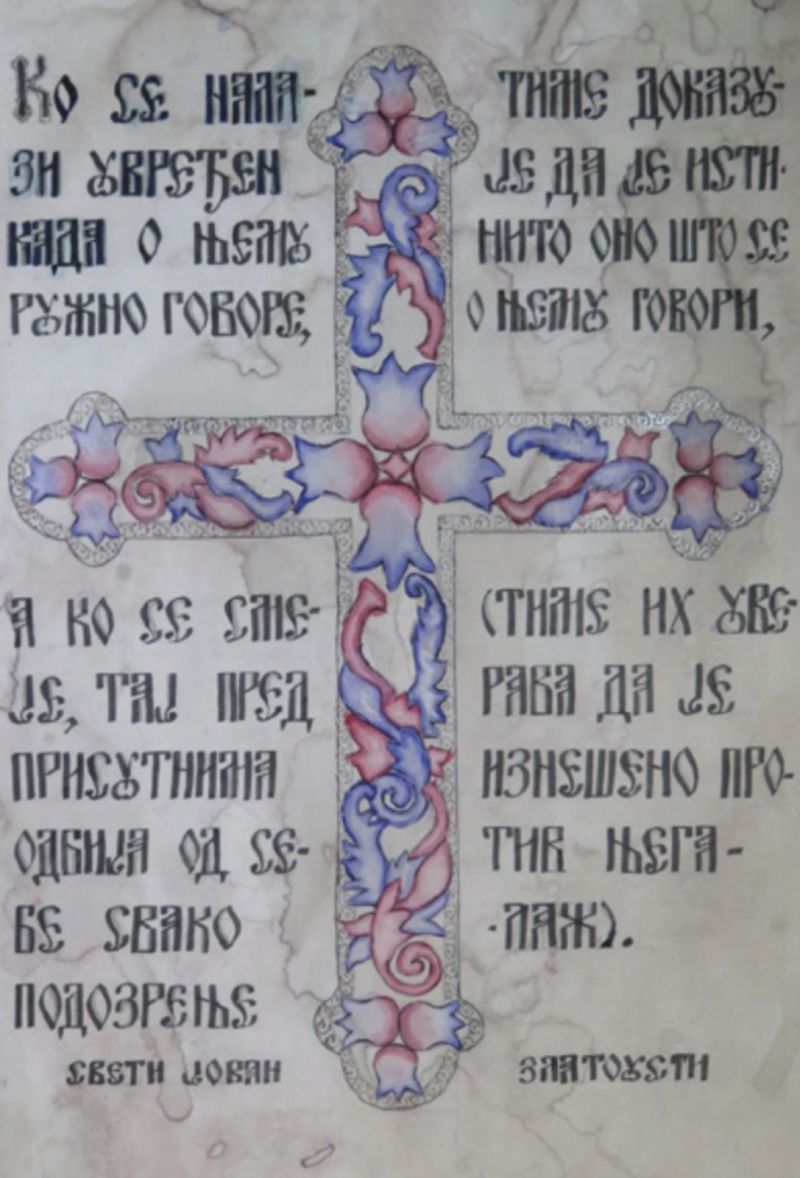 Ко се нала-
зи увређен
када о њему
ружно говоре,
тиме доказу-
је да је исти-
нито оно што се
о њему говори,
а ко се сме-
је, тај пред
присутнима
одбија од се-
бе свако
подозрење
(тиме их уве-
рава да је
изнешено про-
тив њега -
-лаж).
свети јован
златоусти